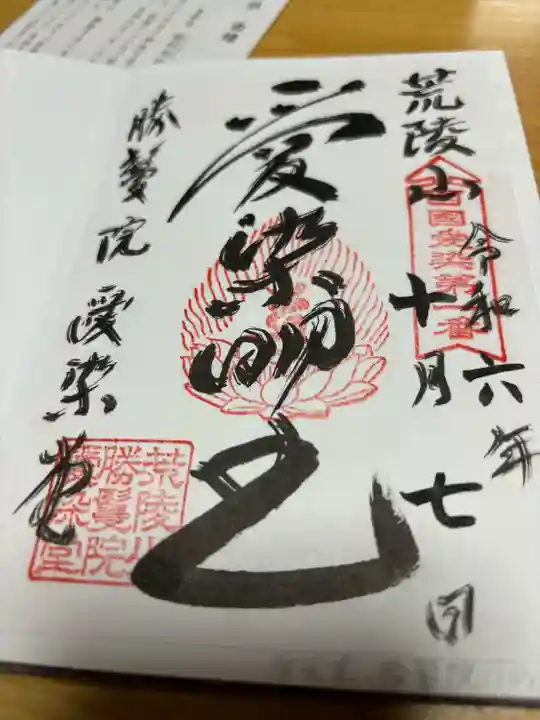 荒陵山
令和六年
十月七日
西国愛染第一番
愛染明王
勝鬘院 愛染堂
荒陵山
勝鬘院
愛染堂